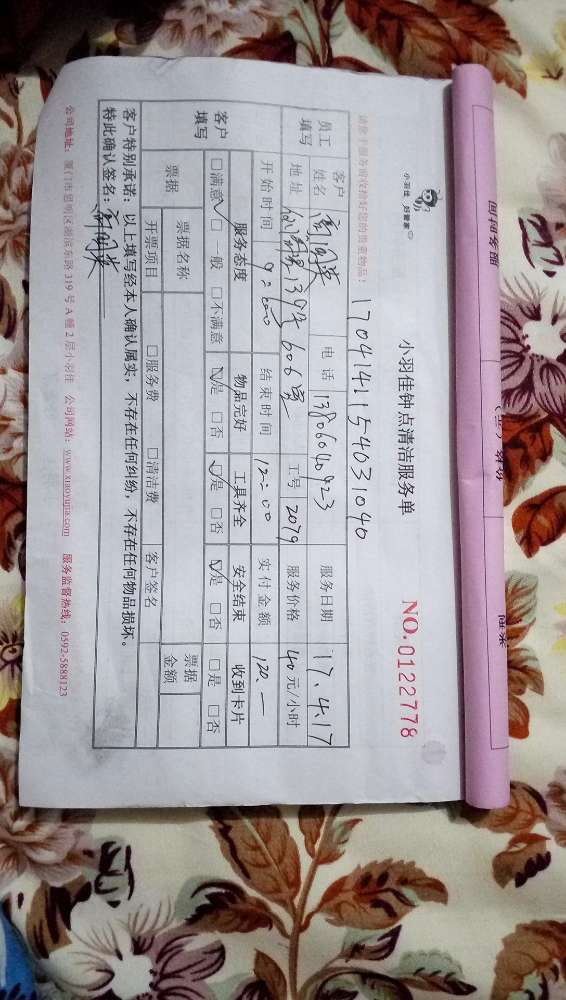 小羽佳 好管家
小羽佳钟点清洁服务单
NO.0122778
170414115403104 0
员工填写
客户姓名
电话 13806040923
服务日期 17.4.17
地址 139号 606室
工号 2079
服务价格 40元/小时
开始时间 9:00
结束时间 12:00
实付金额 120.—
客户填写
服务态度 物品完好 工具齐全 安全结束 收到卡片
☑满意 □一般 □不满意 ☑是 □否 ☑是 □否 ☑是 □否 □是 □否
票据 票据名称 票据金额
开票项目 □服务费 □清洁费 客户签名
客户特别承诺：以上填写经本人确认属实，不存在任何纠纷，不存在任何物品损坏。
特此确认签名：
公司地址：厦门市思明区湖滨东路319号A幢2层小羽佳 公司网站：www.xiaoyujia.com 服务监督热线：0592-5888123